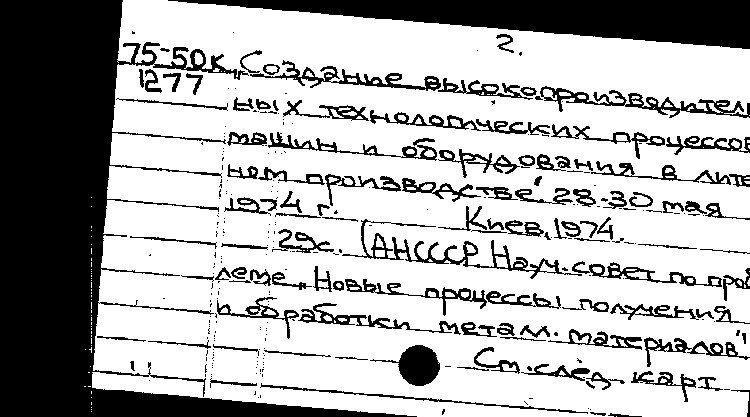 2.
75-50к „Создание высокопроизводитель
1277
ных технологических процессов
машин и оборудования в лите
ном производстве". 28-30 мая
1974 г. Киев, 1974.
29с. (АНСССР. Науч. совет по проб
леме „Новые процессы получения
и обработки металл. материалов"
См. след. карт.